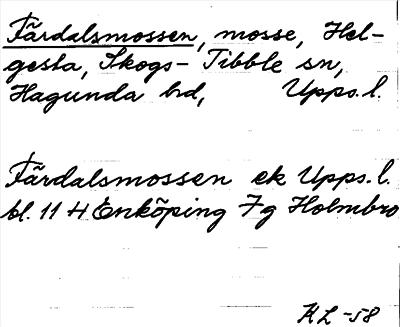 Färdalsmossen, mosse, Hel-
gesta, Skogs-Tibble sn,
Hagunda hd, Upps.l.
Färdalsmossen ek Upps.l.
bl. 11 H Enköping 7g Holmbro
KL-58